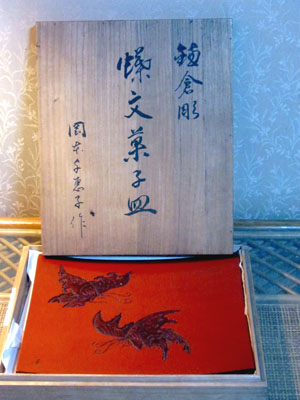 鎌倉彫
蝶文菓子皿
岡本千恵子作